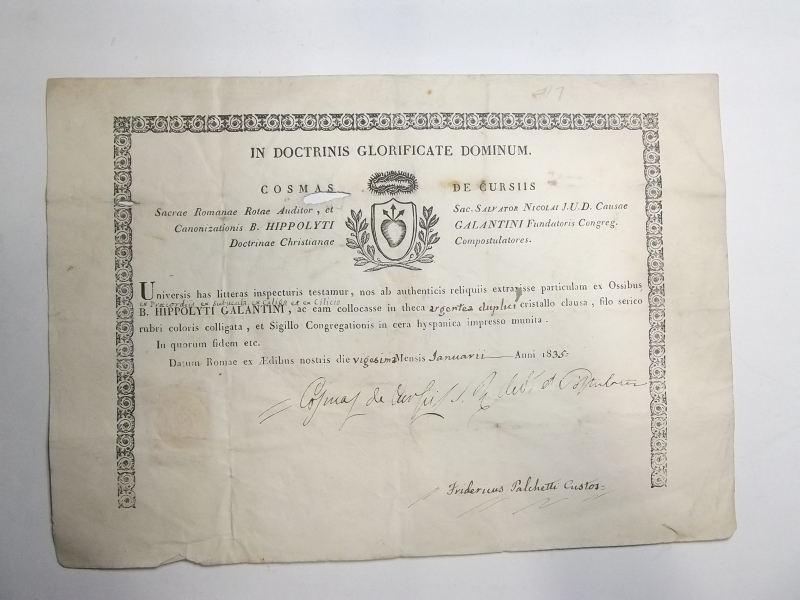 IN DOCTRINIS GLORIFICATE DOMINUM.
COSMAS DE CURSIIS
Sacrae Romanae Rotae Auditor, et Sac. SALVATOR NICOLAI J.U.D. Causae
Canonizationis B. HIPPOLYTI GALANTINI Fundatoris Congreg.
Doctrinae Christianae Compostulatores.
Universis has litteras inspecturis testamur, nos ab authenticis reliquiis extraxisse particulam ex Ossibus
ex Praecordiis ex Subucula ex Caliga et ex Cilicio
B. HIPPOLYTI GALANTINI, ac eam collocasse in theca argentea duplici cristallo clausa, filo serico
rubri coloris colligata, et Sigillo Congregationis in cera hyspanica impresso munita.
In quorum fidem etc.
Datum Romae ex Ædibus nostris die vigesima Mensis Januarii Anni 1835
Cosmas de Cursiis
Fridericus Palchetti Custos